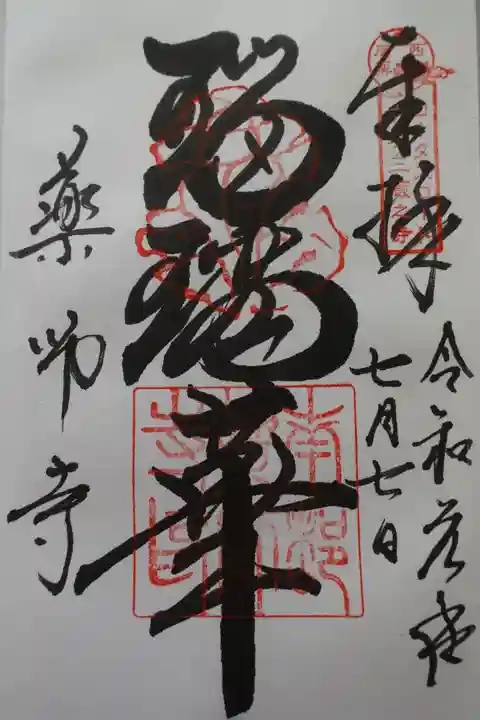 奉拝
令和元年
七月七日
瑠璃華
薬師寺